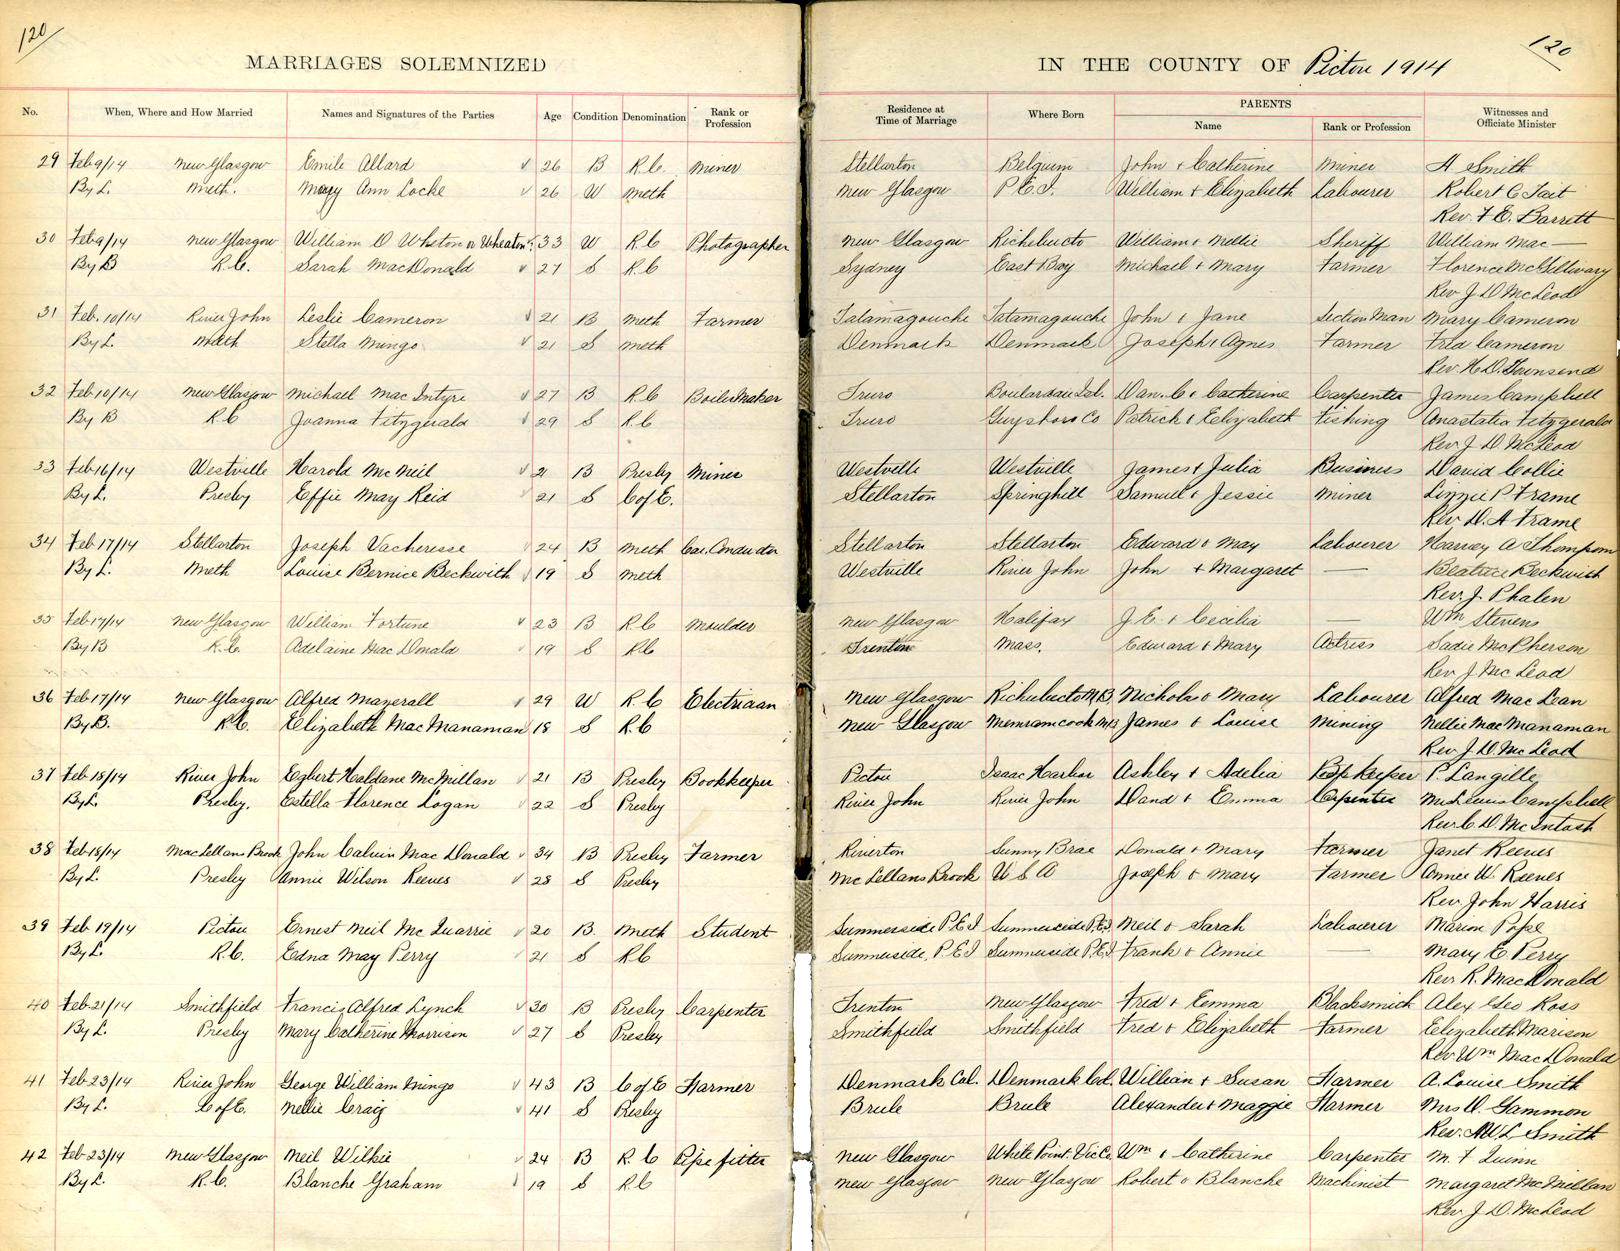 120
120
MARRIAGES SOLEMNIZED IN THE COUNTY OF Pictou 1914
No. When, Where and How Married Names and Signatures of the Parties Age Condition Denomination Rank or Profession Residence at Time of Marriage Where Born PARENTS Name Rank or Profession Witnesses and Officiate Minister
29 Feb 9/14 New Glasgow Emile Allard 26 B R.C. Miner Stellarton Belgium John + Catherine Miner A Smith
By L. Meth. Mary Ann Locke 26 W Meth New Glasgow P.E.I. William + Elizabeth Labourer Robert C Tait
Rev. F E. Barrett
30 Feb 9/14 New Glasgow William D Wheton or Wheaton 33 W R.C Photographer New Glasgow Richibucto William + Nellie Sheriff William Mac —
By B R.C. Sarah MacDonald 27 S R.C Sydney East Bay Michael + Mary Farmer Florence McGillivary
Rev J D McLeod
31 Feb. 10/14 River John Leslie Cameron 21 B Meth Farmer Tatamagouche Tatamagouche John + Jane Section Man Mary Cameron
By L. Meth Stella Mingo 21 S Meth Denmark Denmark Joseph + Agnes Farmer Fred Cameron
Rev. H. D. Townsend
32 Feb 10/14 New Glasgow Michael MacIntyre 27 B R.C Boiler Maker Truro Boulardarie Isl. Dan. C + Catherine Carpenter James Campbell
By B R.C Joanna Fitzgerald 29 S R.C Truro Guysboro Co Patrick + Elizabeth Fishing Anastatia Fitzgerald
Rev J D McLeod
33 Feb 16/14 Westville Harold McNeil 21 B Presby Miner Westville Westville James + Julia Business David Collie
By L. Presby Effie May Reid 21 S C of E. Stellarton Springhill Samuel + Jessie Miner Lizzie P Frame
Rev. D. A Frame
34 Feb 17/14 Stellarton Joseph Vacheresse 24 B Meth Car. Conductor Stellarton Stellarton Edward + May Labourer Harvey A Thompson
By L. Meth Louise Bernice Beckwith 19 S Meth Westville River John John + Margaret — Beatrice Beckwith
Rev. J. Phalen
35 Feb 17/14 New Glasgow William Fortune 23 B R.C Moulder New Glasgow Halifax J. E. + Cecilia — Wm Stevens
By B R.C. Adelaine MacDonald 19 S R.C Trenton Mass. Edward + Mary Actress Sadie McPherson
Rev J. McLeod
36 Feb 17/14 New Glasgow Alfred Mazerall 29 W R.C Electrician New Glasgow Richibucto N.B. Nicholas + Mary Labourer Alfred MacLean
By B. R.C. Elizabeth MacManaman 18 S R.C New Glasgow Memramcook N.B James + Louise Mining Nellie MacManaman
Rev. J. D. McLeod
37 Feb 18/14 River John Egbert Haldane McMillan 21 B Presby Bookkeeper Pictou Isaac Harbor Ashley + Adelia keeper P. Langille
By L. Presby. Estella Florence Logan 22 S Presby River John River John David + Emma Carpenter Mrs Lewis Campbell
Rev. C. D. McIntosh
38 Feb 18/14 MacLellans Brook John Calvin MacDonald 34 B Presby Farmer Riverton Sunny Brae Donald + Mary Farmer Janet Reeves
By L. Presby Annie Wilson Reeves 28 S Presby McLellans Brook U S A Joseph + Mary Farmer Annie W. Reeves
Rev. John Harris
39 Feb 19/14 Pictou Ernest Neil McQuarrie 20 B. Meth Student Summerside P.E.I Summerside P.E.I. Neil + Sarah Labourer Marion Pope
By L. R.C. Edna May Perry 21 S R.C Summerside, P.E.I Summerside P.E.I Frank + Annie — Mary E. Perry
Rev. R. MacDonald
40 Feb 21/14 Smithfield Francis Alfred Lynch 30 B Presby Carpenter Trenton New Glasgow Fred + Emma Blacksmith Alex Geo Ross
By L. Presby Mary Catherine Morrison 27 S Presby Smithfield Smithfield Fred + Elizabeth Farmer Elizabeth Marison
Rev. Wm MacDonald
41 Feb 23/14 River John George William Mingo 43 B C of E Farmer Denmark Col. Denmark Col. William + Susan Farmer A. Louise Smith
By L. C of E. Nellie Craig 41 S Presby Brule Brule Alexander + Maggie Farmer Mrs D. Gammon
Rev. A W L Smith
42 Feb 23/14 New Glasgow Neil Wilkie 24 B R. C Pipe fitter New Glasgow White Point. Vic Co. Wm + Catherine Carpenter M. F Quinn
By L. R.C. Blanche Graham 19 S R.C New Glasgow New Glasgow Robert + Blanche Machinist Margaret McMillan
Rev J. D. McLeod